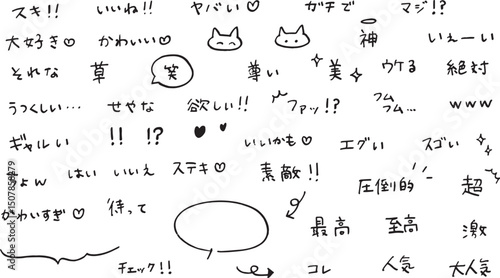 スキ!! いいね!! ヤバい♡ ガチで マジ!?
大好き♡ かわいい♡ 神 いぇーい
それな 草 笑 尊い 美 ウケる 絶対
うつくしい… せやな 欲しい!! ファッ!? フムフム… www
ギャルい !! !? いいかも♡ エグい スゴい
ょw はい いいえ ステキ♡ 素敵!! 圧倒的 超
かわいすぎ♡ 待って 最高 至高 激
チェック!! コレ 人気 大人気
Adobe Stock